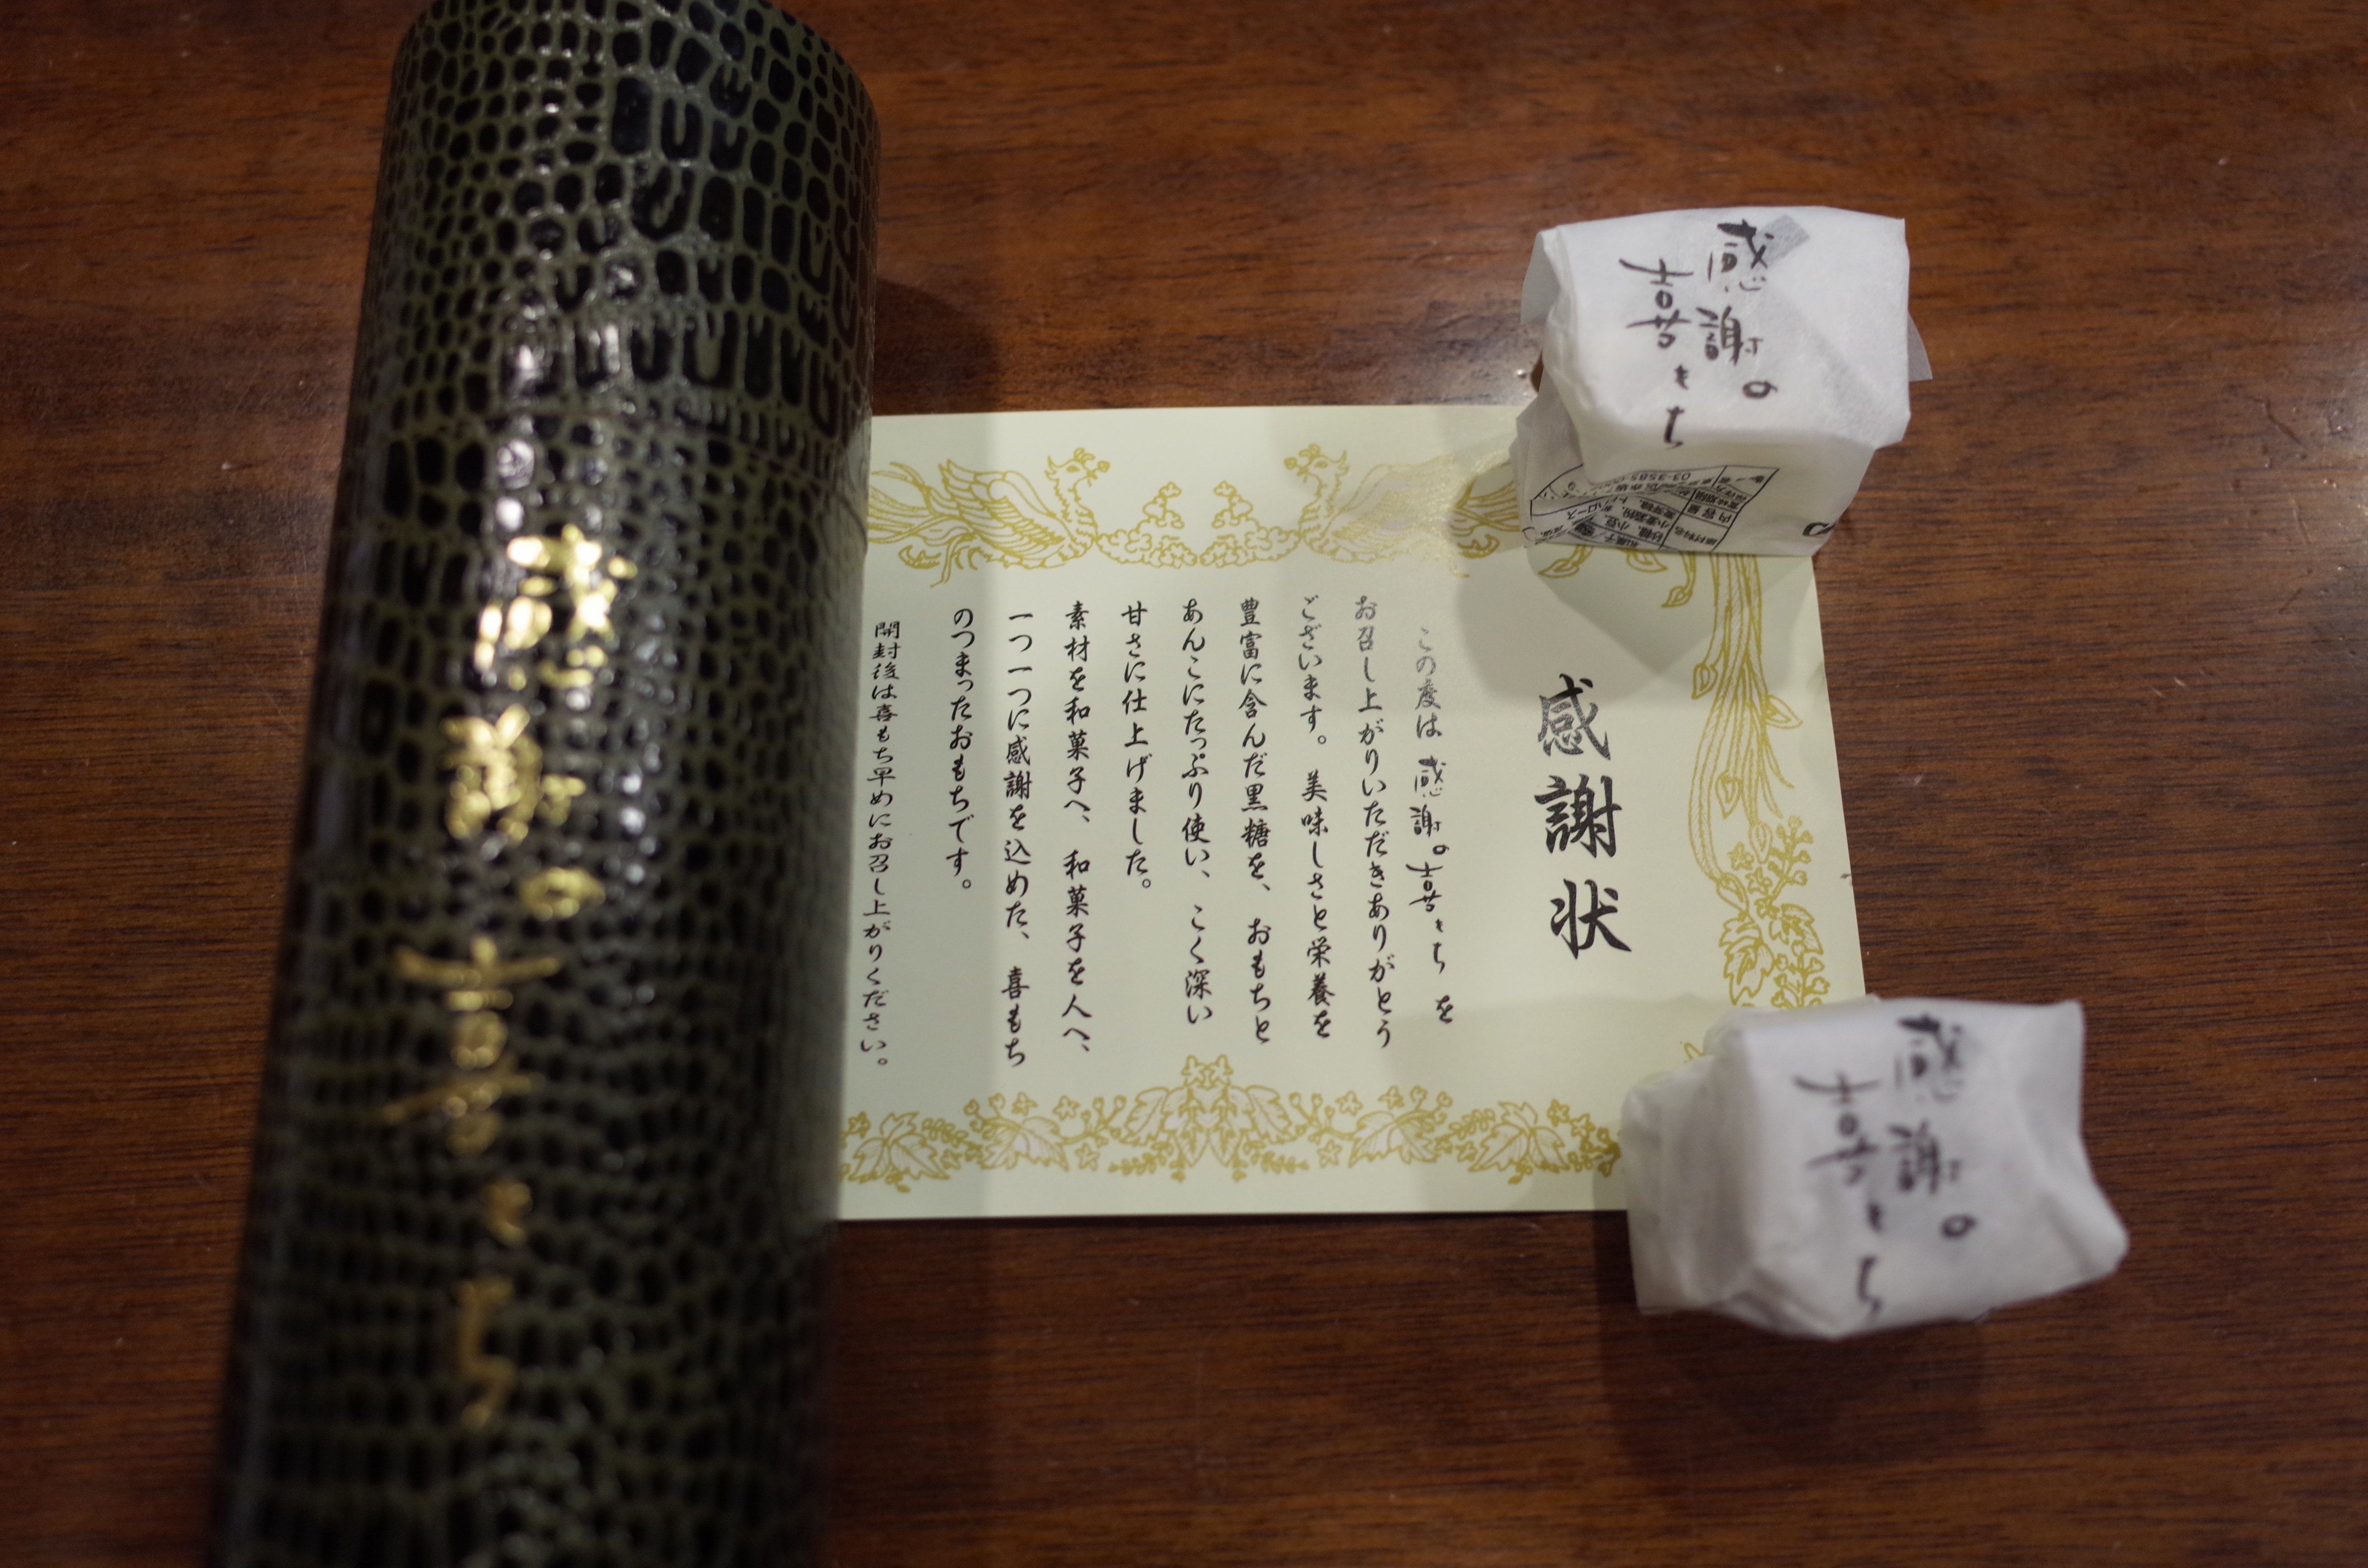 感謝の
喜もち
感謝状
この度は感謝の喜もちを
お召し上がりいただきありがとう
ございます。美味しさと栄養を
豊富に含んだ黒糖を、おもちと
あんこにたっぷり使い、こく深い
甘さに仕上げました。
素材を和菓子へ、和菓子を人へ、
一つ一つに感謝を込めた、喜もち
のつまったおもちです。
開封後は喜もち早めにお召し上がりください。
感謝の
喜もち
内容量
感謝の
喜もち